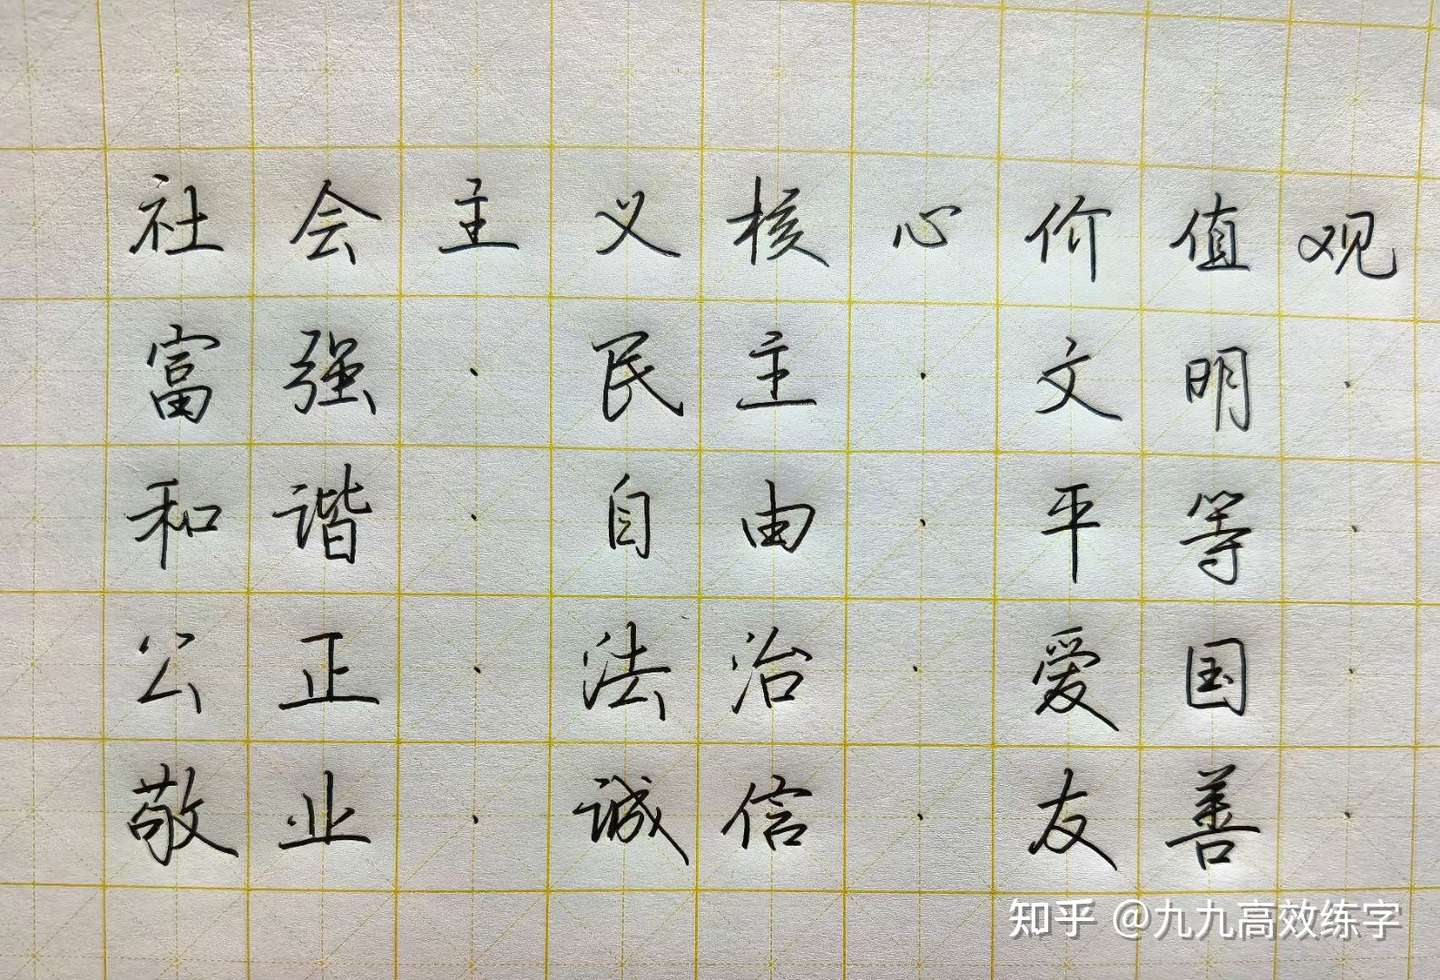 社会主义核心价值观
富强·民主·文明·
和谐·自由·平等·
公正·法治·爱国·
敬业·诚信·友善·
知乎 @九九高效练字